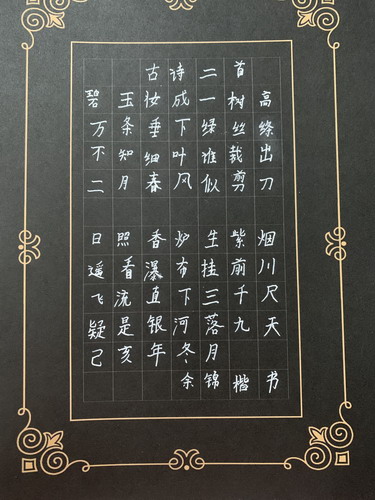 古诗二首
碧玉妆成一树高
万条垂下绿丝绦
不知细叶谁裁出
二月春风似剪刀
日照香炉生紫烟
遥看瀑布挂前川
飞流直下三千尺
疑是银河落九天
己亥年冬月
余锦楷书